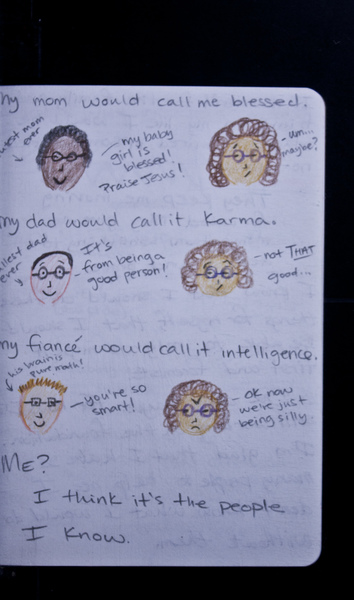 my mom would call me blessed.
mom
ever
my baby
girl is
blessed!
Praise Jesus!
um...
maybe?
my dad would call it karma.
dad
ever
It's
from being a
good person!
not THAT
good...
my fiancé would call it intelligence.
his brain is
pure math!
you're so
smart!
ok now
we're just
being silly.
ME?
I think it's the people
I know.